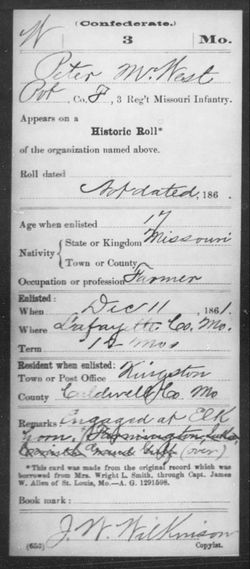 (Confederate.)
W 3 Mo.
Peter McWest
Pvt, Co. F, 3 Reg't Missouri Infantry.
Appears on a
Historic Roll*
of the organization named above.
Roll dated
Not dated, 186 .
Age when enlisted 17
Nativity { State or Kingdom Missouri
Town or County
Occupation or profession Farmer
Enlisted:
When Dec 11, 1861.
Where Lafayette Co. Mo.
Term 12 mos
Resident when enlisted:
Town or Post Office Kingston
County Caldwell Co. Mo
Remarks Engaged at Elk
Horn, Farmington,
Corinth Grand Gulf (over)
*This card was made from the original record which was
borrowed from Mrs. Wright L. Smith, through Capt. James
W. Allen of St. Louis, Mo.—A. G. 1291598.
Book mark:
J. W. Wilkinson
(652) Copyist.